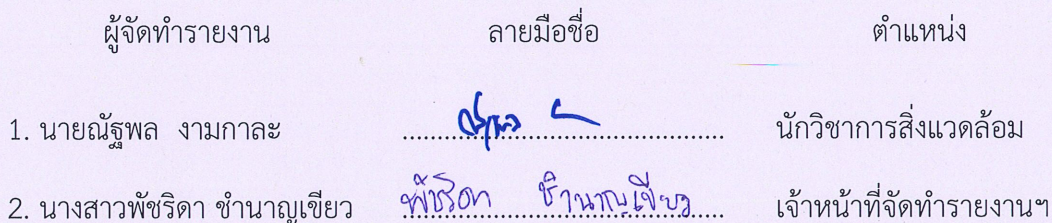 ผู้จัดทำรายงาน ลายมือชื่อ ตำแหน่ง
1. นายณัฐพล งามกาละ ........................................ นักวิชาการสิ่งแวดล้อม
2. นางสาวพัชริดา ชำนาญเขียว พัชริดา ชำนาญเขียว เจ้าหน้าที่จัดทำรายงานฯ